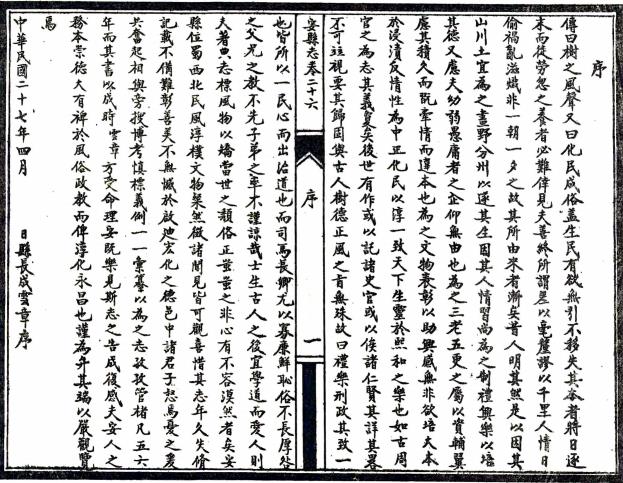 序
傳曰樹之風聲又曰化民成俗蓋生民有欲無引不移失其本者將日逐
末而徒勞忽之養者必難倖見夫善終所謂差以毫釐謬以千里人情日
偷禍亂滋熾非一朝一夕之故其所由來者漸矣昔人明其然是以因其
山川土宜為之畫野分州以遂其生因其人情習尚為之制禮興樂以培
其德又慮夫幼弱愚庸者之企仰無由也為之三老五更之屬以資輔翼
慮其積久而翫牽情而違本也為之文物表彰以助興感無非欲培大本
於浸漬反情性為中正化民以淳一致天下生靈於熙和之樂也如古周
官之為志其義夐矣後世有作或以託諸史官或以俟諸仁賢其詳其畧
不可泣視要其歸固與古人樹德正風之旨無殊故曰禮樂刑政其致一
安縣志卷二十六 序 一
也皆所以一民心而出治道也而司馬長卿尤以寡廉鮮恥俗不長厚咎
之父兄之教不先子弟之率不謹諒哉士生古人之後宜學道而愛人則
夫著之志標風物以矯當世之頹俗正蚩蚩之非心有不容漠然者矣安
縣位蜀西北民風淳樸文物粲然徵諸聞見皆可觀喜惜其志年久失脩
記載不備難彰善美不無憾於啟迪宏化之德邑中諸君子惄焉憂之爰
共奮起相與旁搜博考慎標義例一一彙以為之志孜孜管楮凡五六
年而其書以成時雲章方受命理安旣樂見斯志之告成復感夫安人之
務本崇德大有裨於風俗政教而俾淳化永昌也謹為弁其端以嚴觀覽
焉
中華民國二十七年四月 日縣長成雲章序